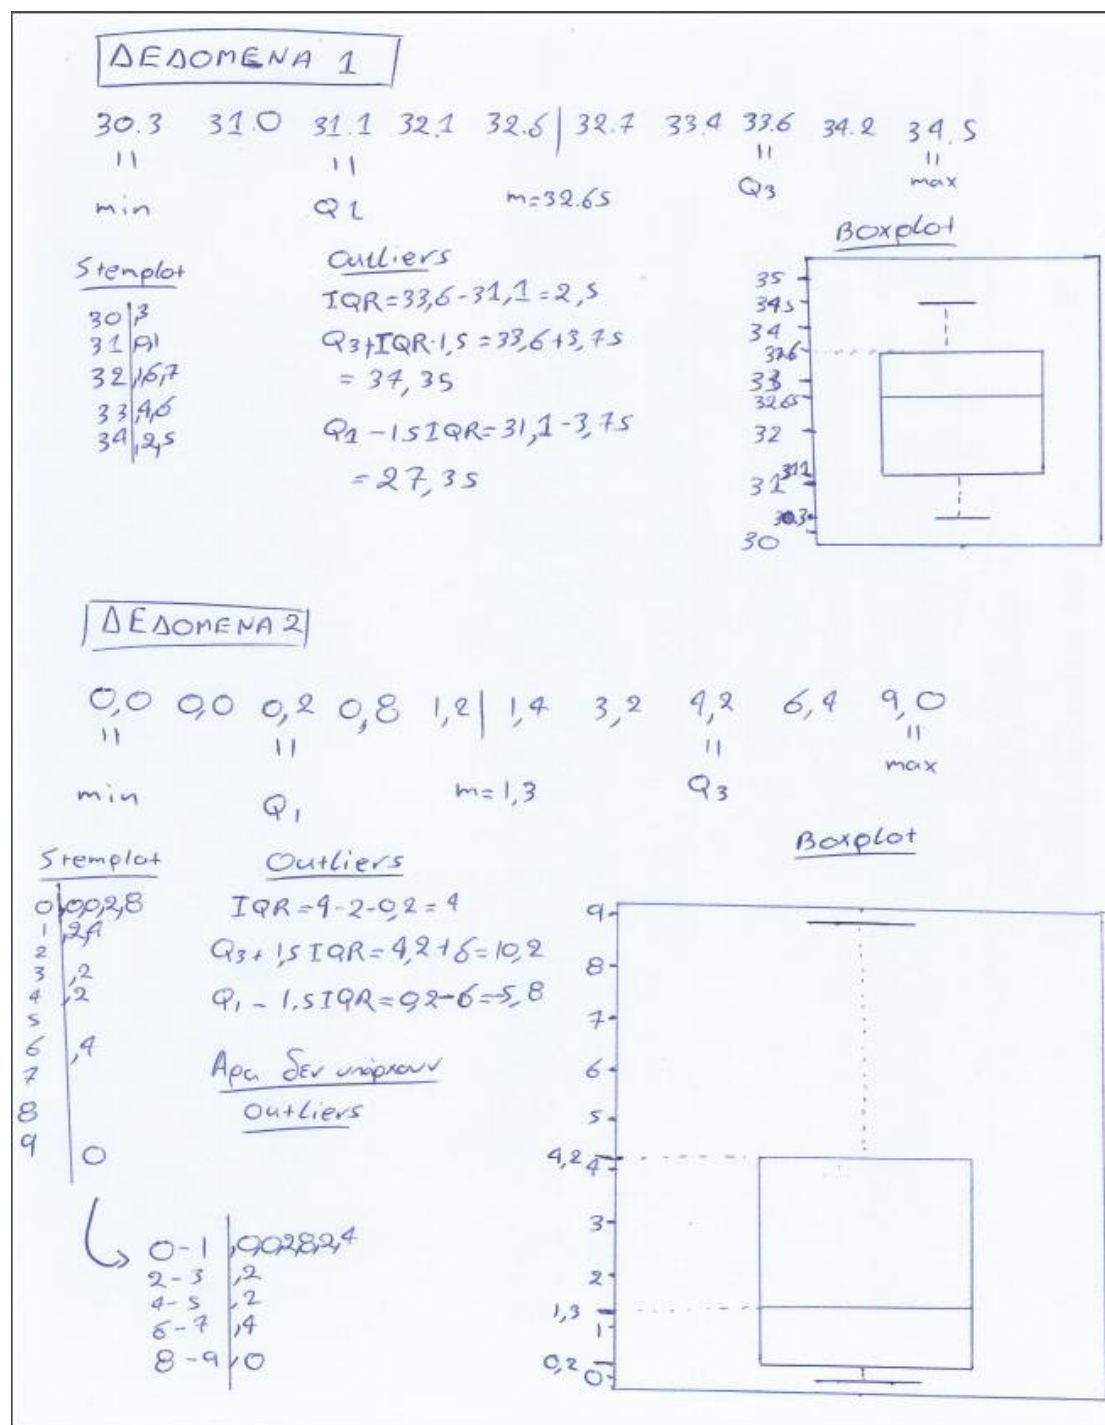 ΔΕΔΟΜΕΝΑ 1
30.3 31.0 31.1 32.1 32.6 | 32.7 33.4 33.6 34.2 34.5
min Q1 m=32.65 Q3 max
Stemplot
30|,3
31|,0,1
32|,1,6,7
33|,4,6
34|,2,5
Outliers
IQR=33,6-31,1=2,5
Q3+IQR·1,5=33,6+3,75
=37,35
Q1-1.5IQR=31,1-3,75
=27,35
Boxplot
35
34.5
34
33.6
33
32.65
32
31.1
31
30.3
30
ΔΕΔΟΜΕΝΑ 2
0,0 0,0 0,2 0,8 1,2 | 1,4 3,2 4,2 6,4 9,0
min Q1 m=1,3 Q3 max
Stemplot
0|,0,0,2,8
1|,2,4
2|
3|,2
4|,2
5|
6|,4
7|
8|
9|0
0-1|,0,0,2,8,2,4
2-3|,2
4-5|,2
6-7|,4
8-9|,0
Outliers
IQR=4-2-0,2=4
Q3+1,5IQR=4,2+6=10,2
Q1-1.5IQR=0,2-6=-5,8
Αρα δεν υπάρχουν
Outliers
Boxplot
9
8
7
6
5
4,2
4
3
2
1,3
1
0,2
0